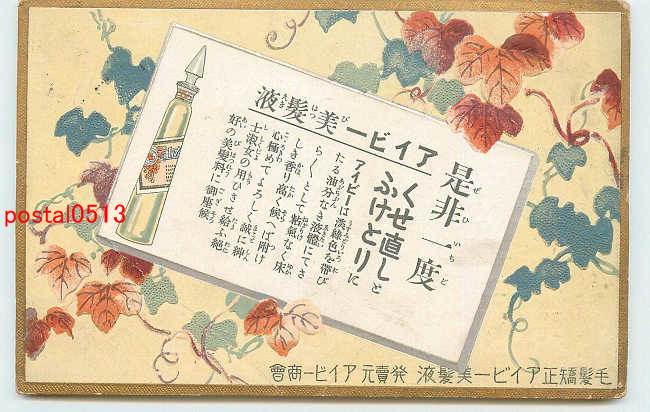 是非一度
アイビー美髮液
くせ直しと
ふけとりに
アイビーは淡綠色を帶び
たる油分なき液體にてさ
らくとして粘氣なく床
しき香り高く候へば附け
心極めてよろしく誠に紳
士淑女の用ひさせ給ふ絕
好の美髮料に御座候
毛髮矯正アイビー美髮液 發賣元アイビー商會
postal0513